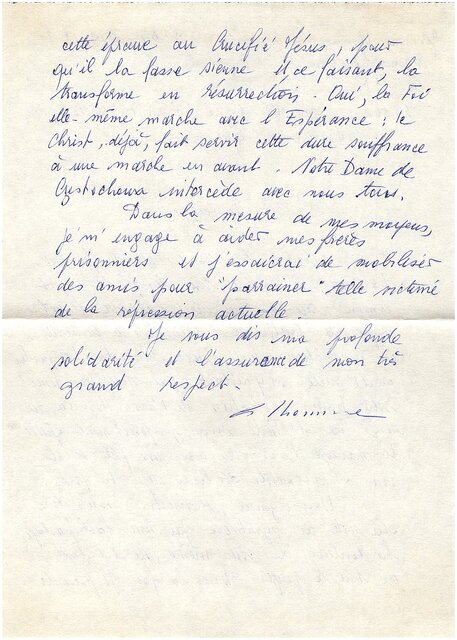 cette épreuve au Crucifié Jésus, pour
qu'il la fasse sienne et, ce faisant, la
transforme en résurrection. Oui, la Foi
elle-même marche avec l'Espérance : le
Christ, déjà, fait servir cette dure souffrance
à une marche en avant. Notre Dame de
Czestochowa intercède avec nous tous.
Dans la mesure de mes moyens,
je m'engage à aider mes frères
prisonniers et j'essaierai de mobiliser
des amis pour "parrainer" telle victime
de la répression actuelle.
Je vous dis ma profonde
solidarité et l'assurance de mon très
grand respect.